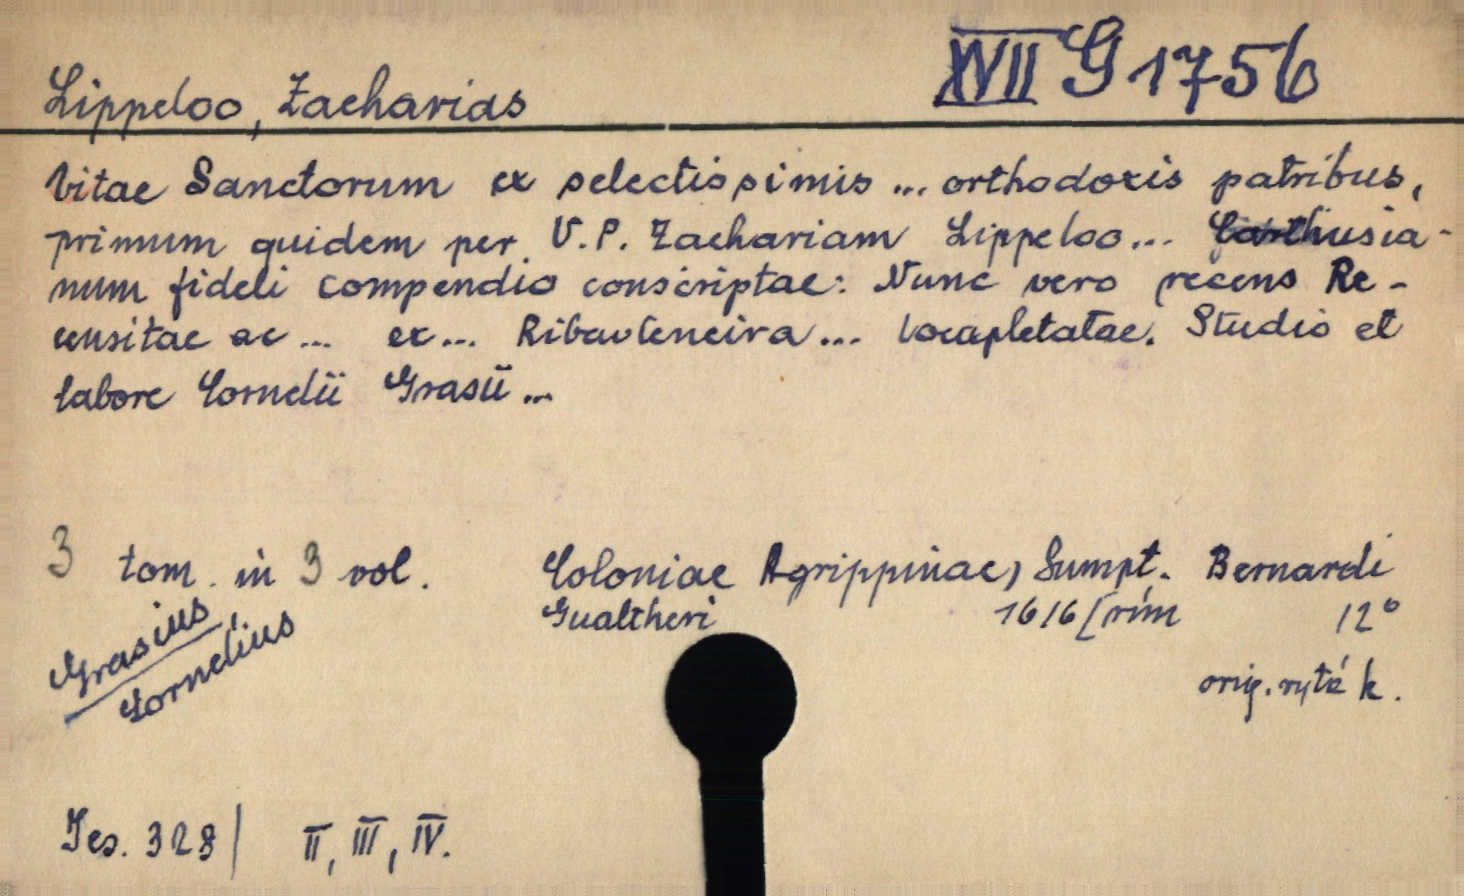 XVII G 1756
Lippeloo, Zacharias
Vitae Sanctorum ex selectissimis ... orthodoxis patribus,
primum quidem per V. P. Zachariam Lippeloo... Carthusia-
num fideli compendio conscriptae: Nunc vero recens Re-
censitae ac ... ex... Ribadeneira... locupletatae. Studio et
labore Cornelii Grasii ...
3 tom. in 3 vol. Coloniae Agrippinae, Sumpt. Bernardi
Gualtheri 1616 [rím 12°
Grasius,
Cornelius
orig. rytá k.
Jes. 328/ II, III, IV.